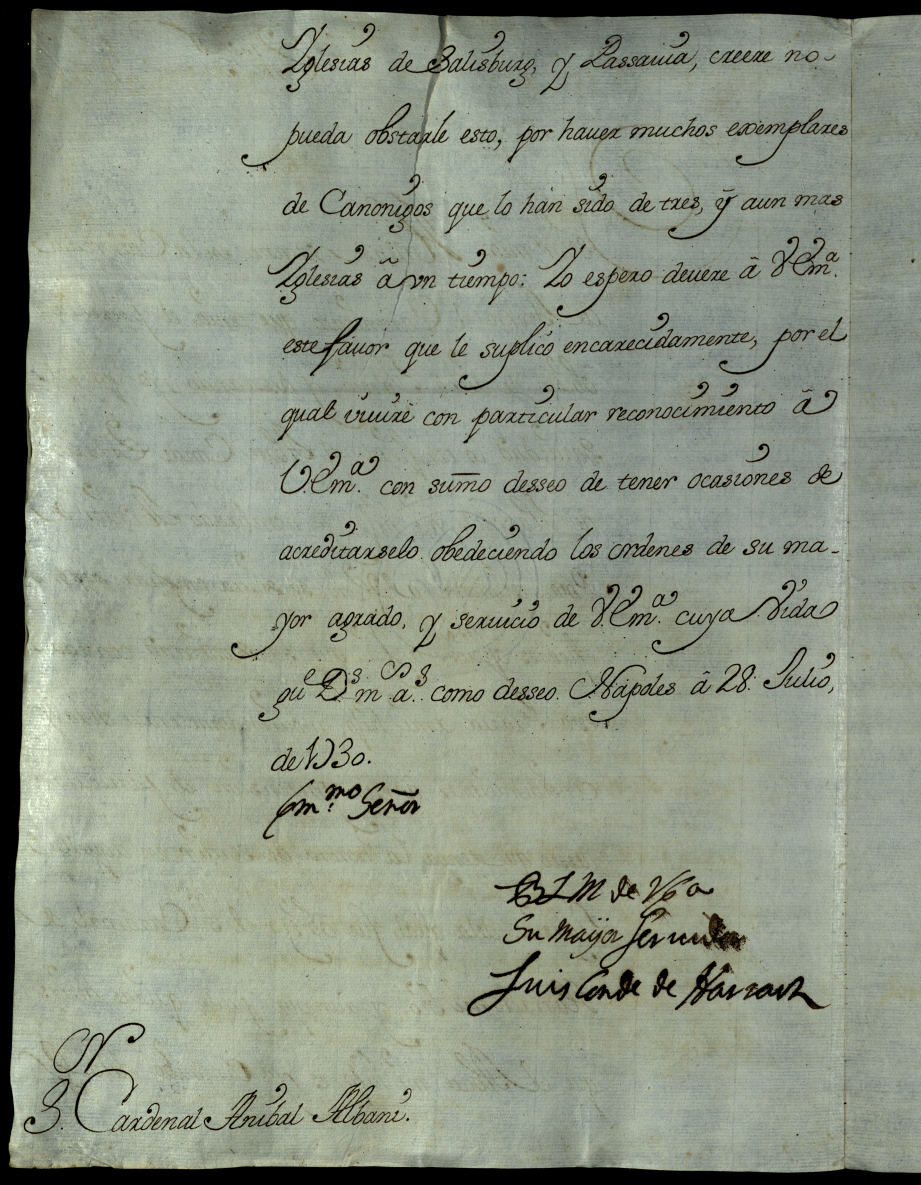 Yglesias de Salisburg, y Passavia, creere no
pueda obstarle esto, por haver muchos exemplares
de Canonigos que lo han sido de tres, ÿ aun mas
Yglesias â vn tiempo: Lo espero devere â V.Em.ª
este favor que le suplico encarecidamente, por el
qual vivirè con particular reconocimiento â
V.Em.ª con sumo desseo de tener ocasiones de
acreditarselo obedeciendo los ordenes de su ma-
yor agrado, y servicio de V.Em.ª cuya Vida
gu.e D.s m.s a.s como desseo. Napoles â 28. Julio,
de 1730.
Em.mo Señor
BLM de VEa
Su mayor servidor
Luis Conde de Harrach
S. Cardenal Anibal Albani.